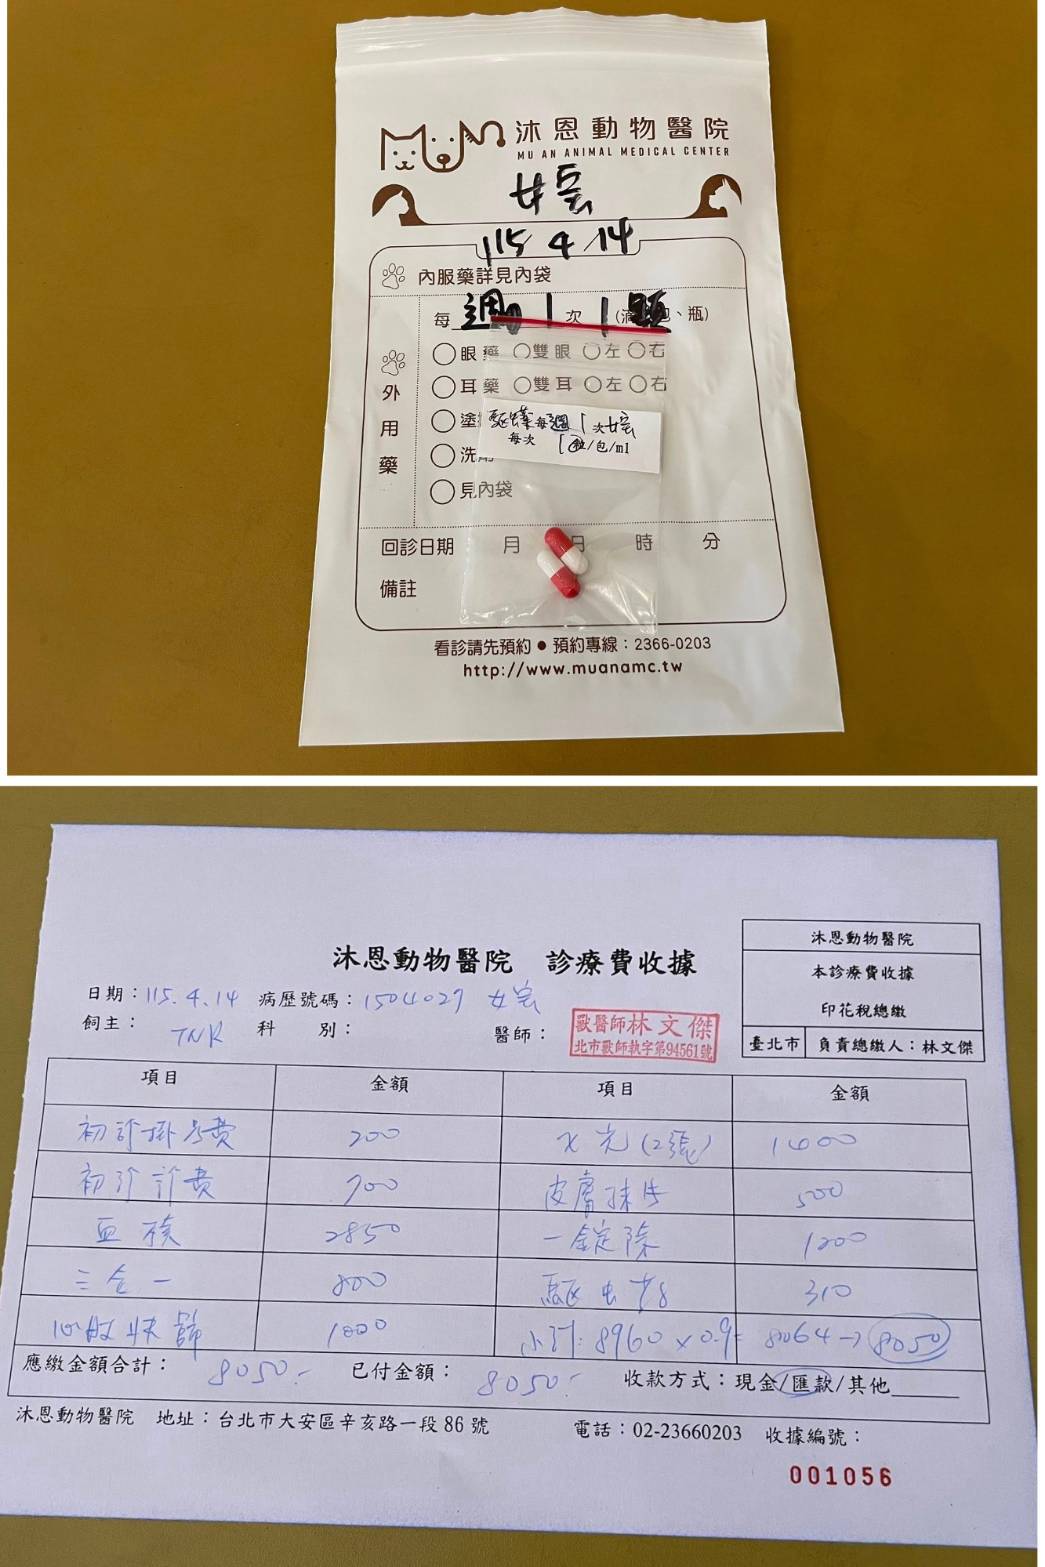 沐恩動物醫院
MU AN ANIMAL MEDICAL CENTER
女宏
115 4 14
內服藥詳見內袋
每週1次 1顆 包、瓶)
外用藥
眼藥 雙眼 左 右
耳藥 雙耳 左 右
塗
洗
見內袋
驅蟲藥每週1次女宏
每次 1粒/包/ml
回診日期 月 日 時 分
備註
看診請先預約 ● 預約專線：2366-0203
http://www.muanamc.tw
沐恩動物醫院 診療費收據
沐恩動物醫院
本診療費收據
印花稅總繳
臺北市 負責總繳人：林文傑
日期：115.4.14 病歷號碼：1504027 女宏
飼主：TNR 科 別： 醫師：
獸醫師林文傑
北市獸師執字第94561號
項目 金額 項目 金額
初診掛号費 200 X光(2張) 1400
初診診費 700 皮膚抹片 500
血檢 2850 一錠除 1200
三合一 800 驅虫藥 310
心散快篩 1000 小計：8960×0.9= 8064→8050
應繳金額合計：8050.- 已付金額：8050.- 收款方式：現金/匯款/其他
沐恩動物醫院 地址：台北市大安區辛亥路一段86號 電話：02-23660203 收據編號：
001056